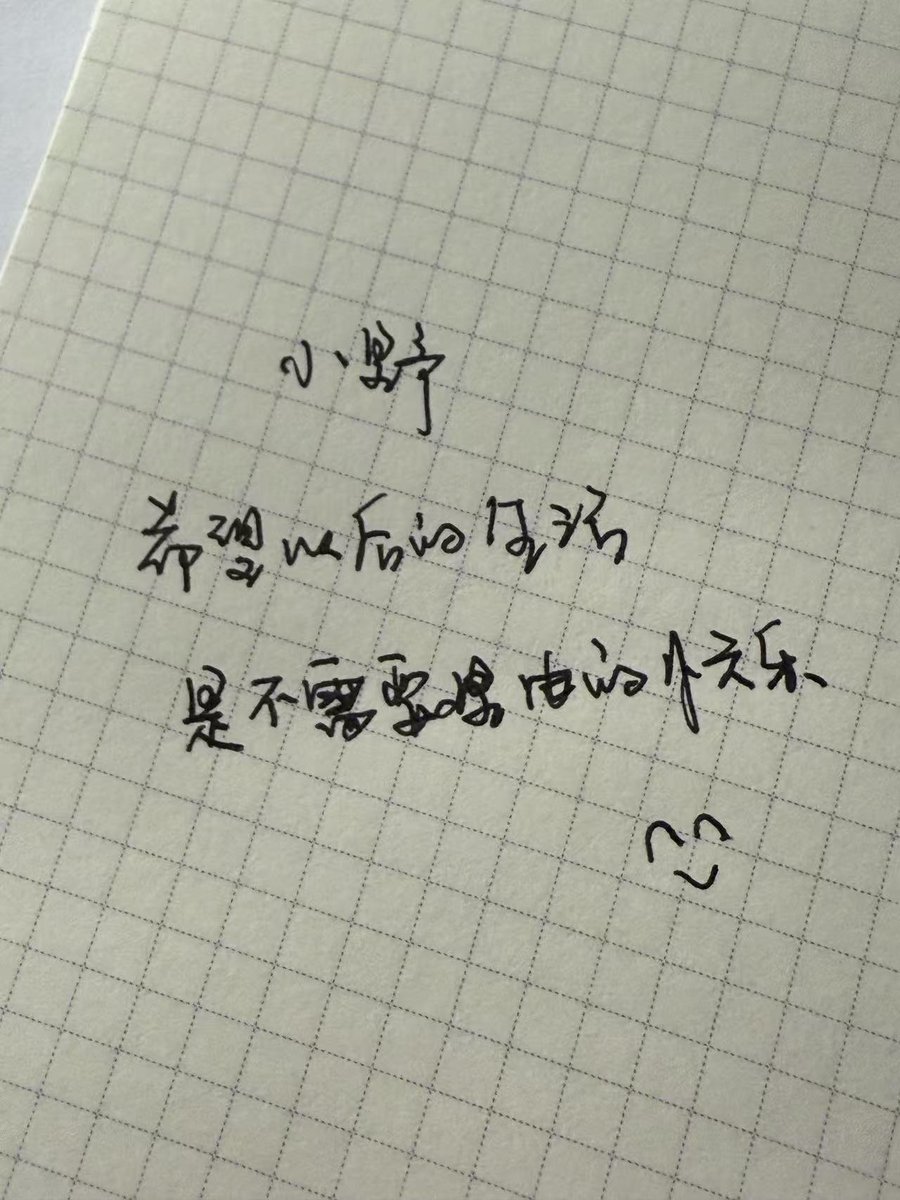 小野
希望以后的生活
是不需要理由的快乐、